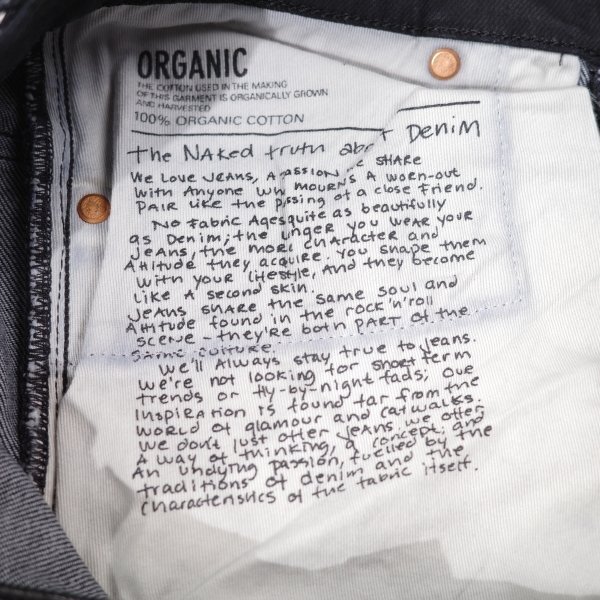 ORGANIC
THE COTTON USED IN THE MAKING
OF THIS GARMENT IS ORGANICALLY GROWN
AND HARVESTED
100% ORGANIC COTTON
the Naked truth abo t Denim
We Love Jeans, A passion we share
with Anyone who mourns A worn-out
pair like the passing of a close friend.
No Fabric Ages quite as beautifully
as Denim; the longer you wear your
Jeans, the more character and
Attitude they acquire. You shape them
with your lifestyle, And they become
like a second skin.
Jeans share the same soul and
Attitude found in the rock 'n' roll
scene - they're both part of the
same culture.
We'll Always stay true to Jeans.
We're not looking for short term
trends or fly-by-night fads; Our
Inspiration is found far from the
world of glamour and catwalks.
We don't just offer Jeans, we offer
A way of thinking, A concept, and
An undying passion, fuelled by the
traditions of denim and the
characteristics of the fabric itself.